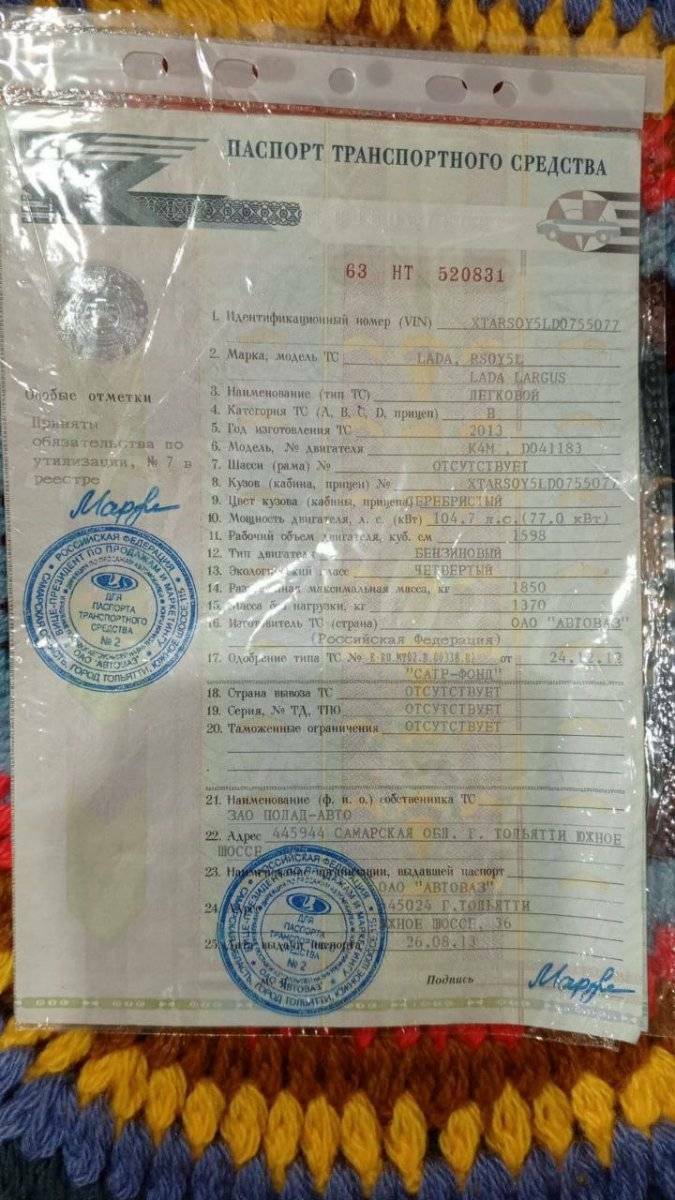 ПАСПОРТ ТРАНСПОРТНОГО СРЕДСТВА
63 НТ 520831
1. Идентификационный номер (VIN) XTARSOY5LD0755077
2. Марка, модель ТС LADA, RSOY5L
LADA LARGUS
3. Наименование (тип ТС) ЛЕГКОВОЙ
4. Категория ТС (А, В, С, D, прицеп) В
5. Год изготовления ТС 2013
6. Модель, № двигателя K4M , D041183
7. Шасси (рама) № ОТСУТСТВУЕТ
8. Кузов (кабина, прицеп) № XTARSOY5LD0755077
9. Цвет кузова (кабины, прицепа) СЕРЕБРИСТЫЙ
10. Мощность двигателя, л. с. (кВт) 104.7 л.с.(77.0 кВт)
11. Рабочий объем двигателя, куб. см 1598
12. Тип двигателя БЕНЗИНОВЫЙ
13. Экологический класс ЧЕТВЕРТЫЙ
14. Разрешенная максимальная масса, кг 1850
15. Масса без нагрузки, кг 1370
16. Изготовитель ТС (страна) ОАО "АВТОВАЗ"
(Российская Федерация)
17. Одобрение типа ТС № от 24.12.12
"САТР-ФОНД"
18. Страна вывоза ТС ОТСУТСТВУЕТ
19. Серия, № ТД, ТПО ОТСУТСТВУЕТ
20. Таможенные ограничения ОТСУТСТВУЕТ
21. Наименование (ф. и. о.) собственника ТС
ЗАО ПОЛАД-АВТО
22. Адрес 445944 САМАРСКАЯ ОБЛ. Г. ТОЛЬЯТТИ ЮЖНОЕ
ШОССЕ
23. Наименование организации, выдавшей паспорт
ОАО "АВТОВАЗ"
24. 45024 Г.ТОЛЬЯТТИ
ЮЖНОЕ ШОССЕ, 36
25. Дата выдачи паспорта 26.08.13
Подпись
Особые отметки
Приняты
обязательства по
утилизации, № 7 в
реестре
РОССИЙСКАЯ ФЕДЕРАЦИЯ
ВИЦЕ-ПРЕЗИДЕНТ ПО ПРОДАЖАМ И МАРКЕТИНГУ
ДЛЯ
ПАСПОРТА
ТРАНСПОРТНОГО
СРЕДСТВА
№ 2
ОАО "АВТОВАЗ"
РОССИЙСКАЯ ФЕДЕРАЦИЯ
ДЛЯ
ПАСПОРТА
ТРАНСПОРТНОГО
СРЕДСТВА
№ 2
ОАО "АВТОВАЗ"